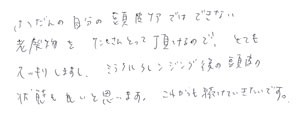 ふだんの自分の頭皮ケアではできない
老廃物をたくさんとって頂けるので、とても
スッキリしますし、ミラブルクレンジング後の頭皮の
状態も良いと思います。これからも続けていきたいです。